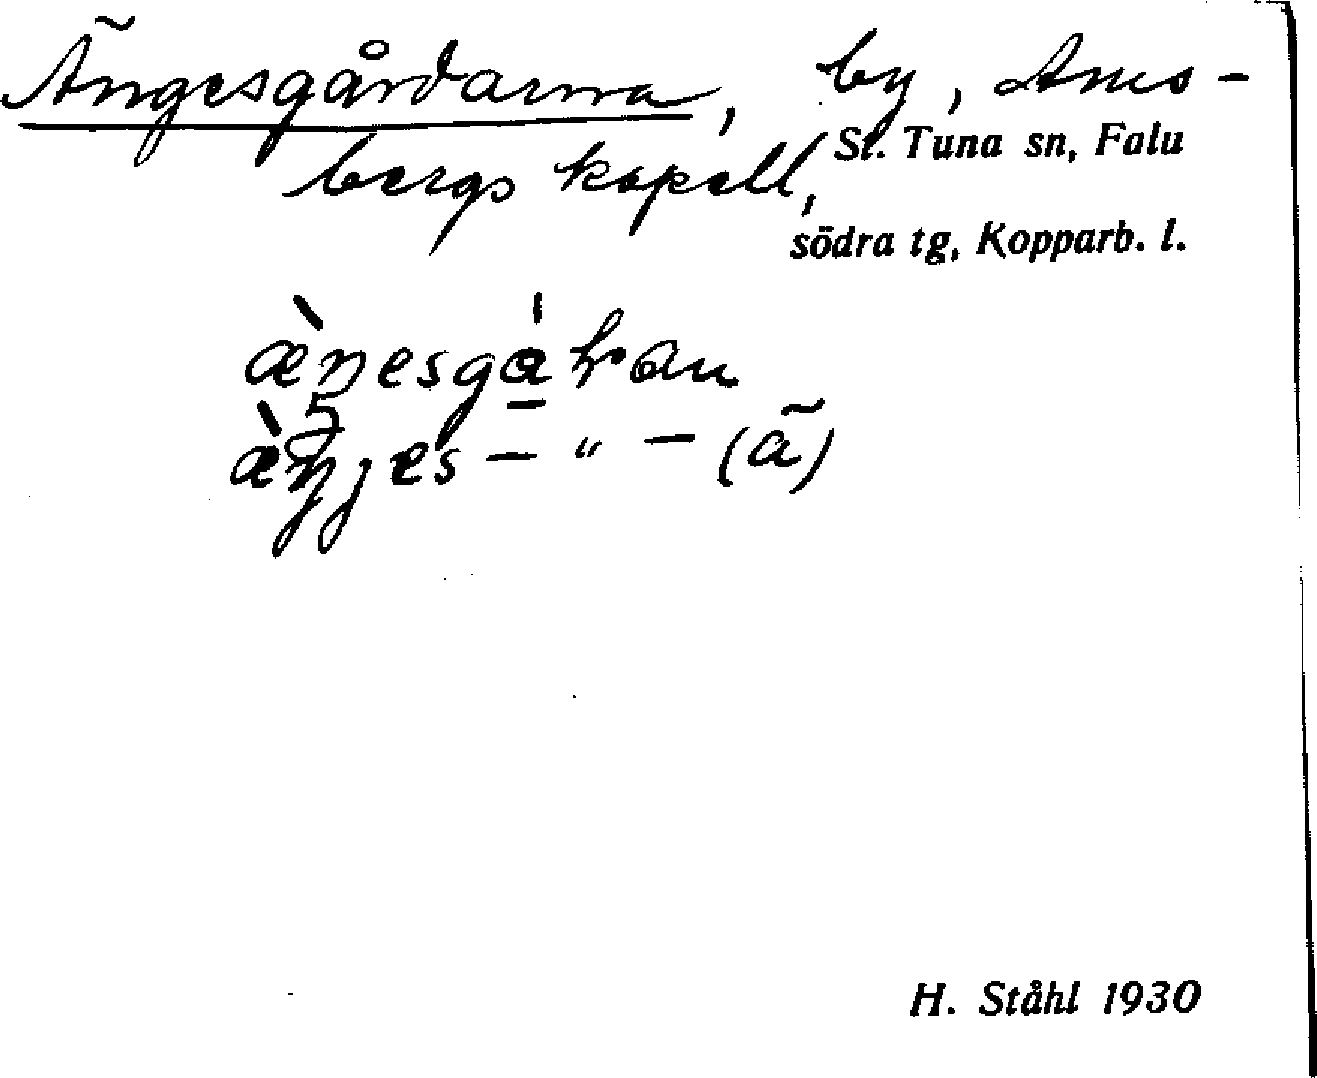 Ängesgårdarna, by, Ams-
bergs kapell,
St. Tuna sn, Falu
södra tg, Kopparb. l.
H. Ståhl 1930